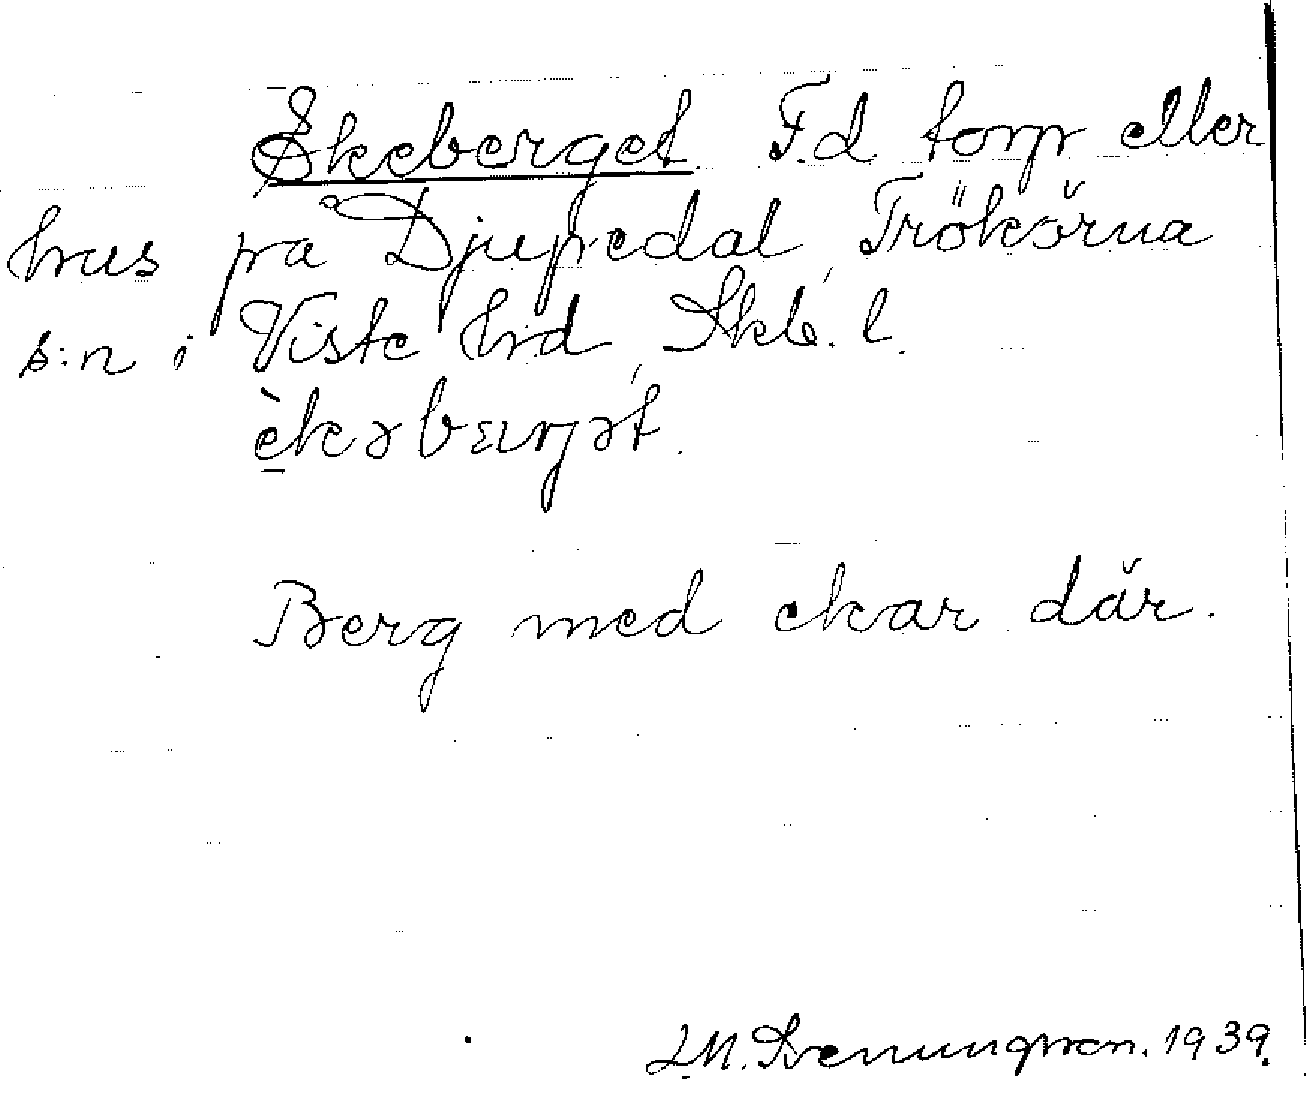 Ekeberget F.d torp eller
hus på Djupedal, Trökörna
s:n i Viste hd, Skb. l.
Berg med ekar där.
L.M. Svenungsson. 1939.